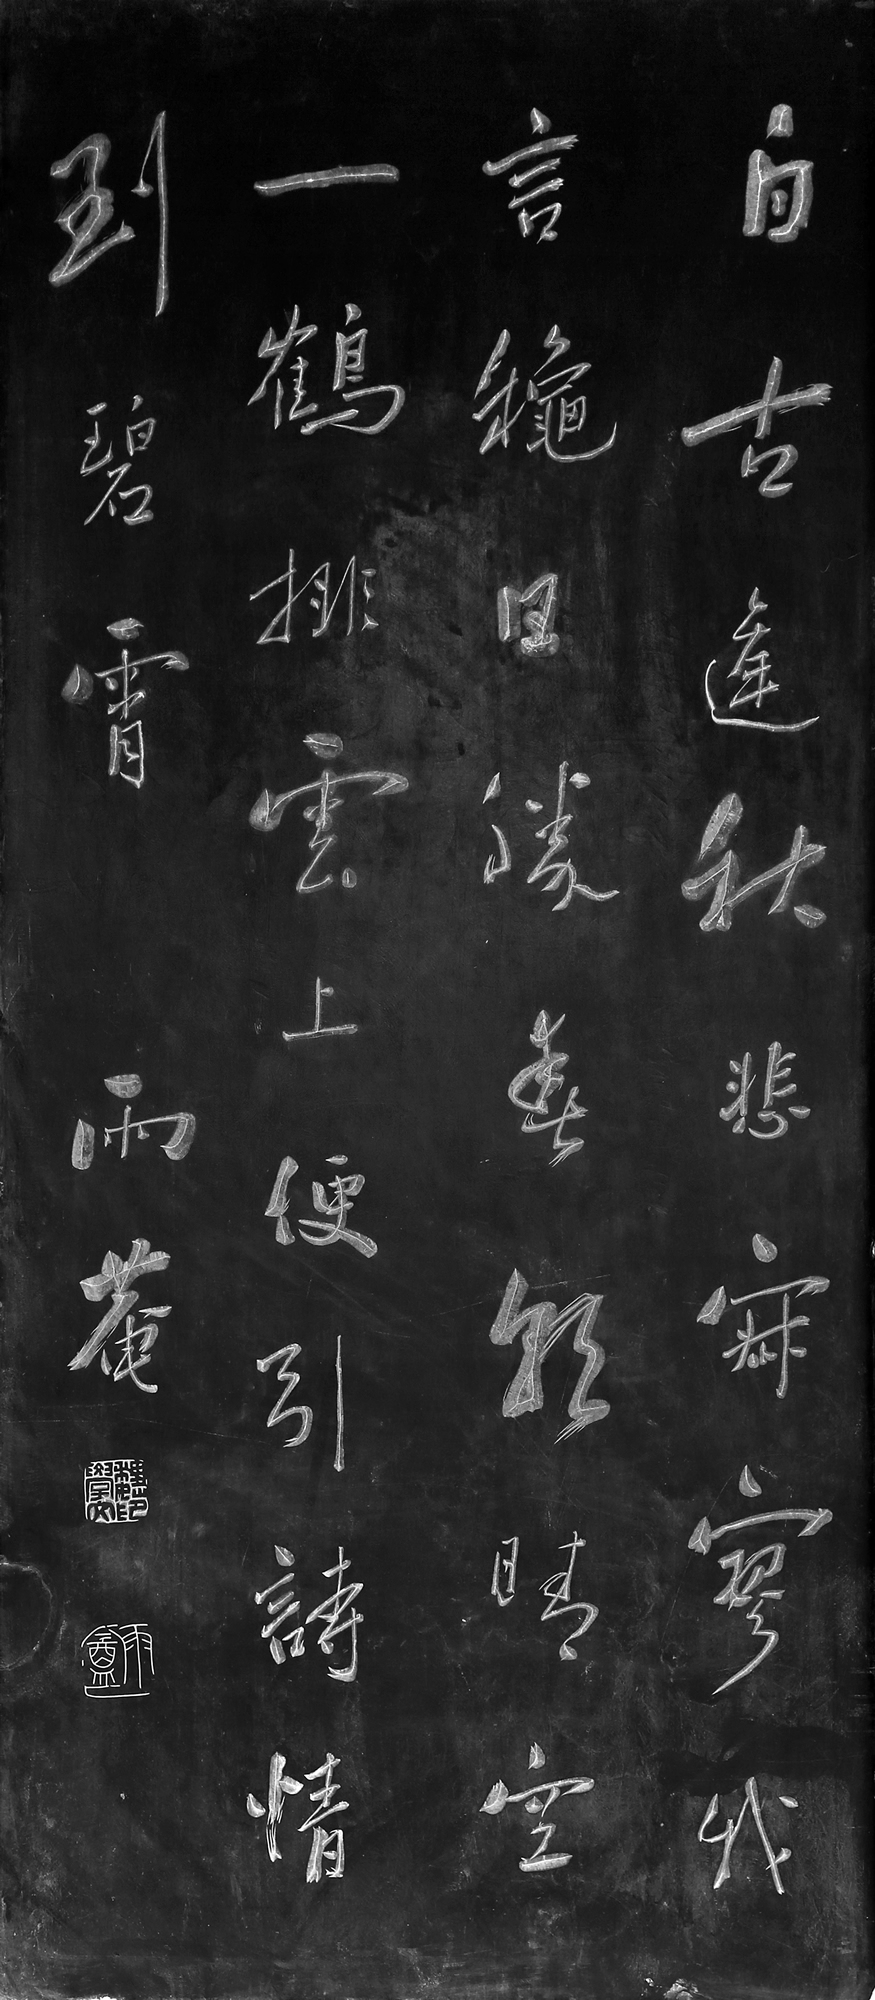 自古逢秋悲寂寥我
言龝日勝春朝晴空
一鶴排雲上便引詩情
到碧霄 雨菴
雨盦